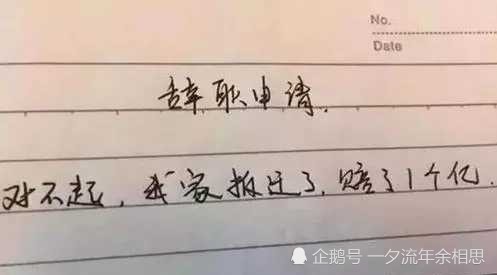 No.
Date
辞职申请.
对不起，我家拆迁了，赔了1个亿.
企鹅号 一夕流年余相思